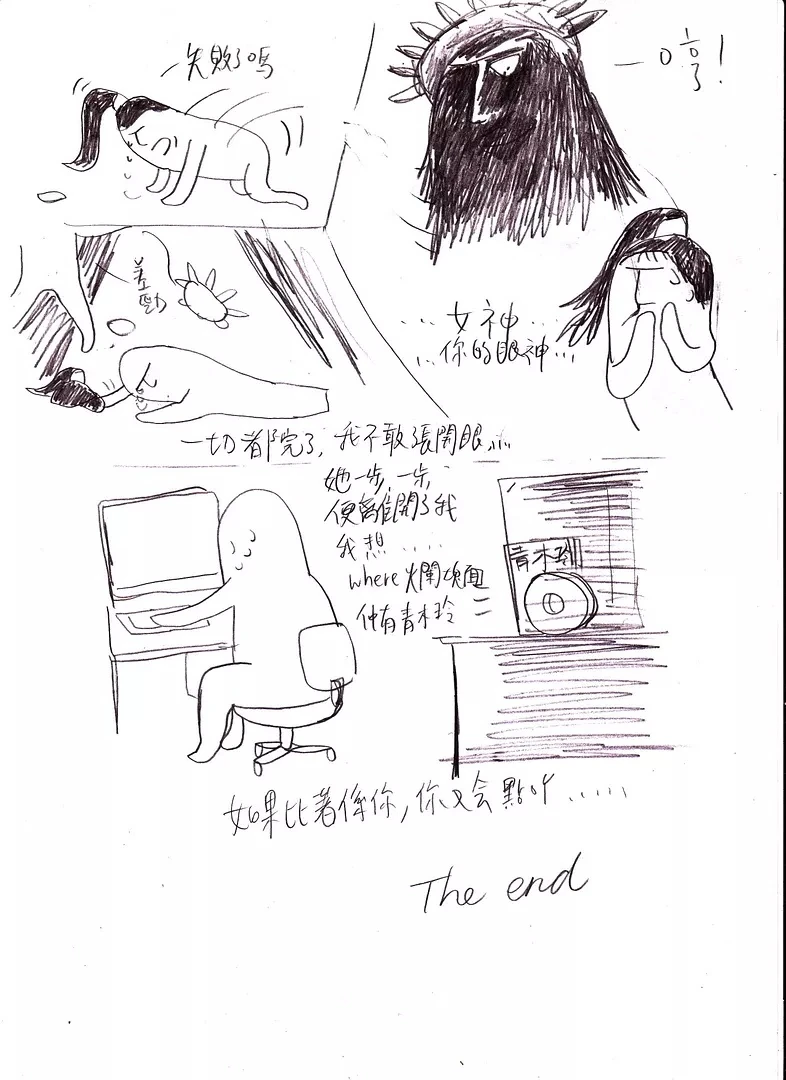 失敗了嗎
哼！
差勁
...女神...
...你的眼神...
一切都完了，我不敢張開眼......
她一步，一步，
便離開了我
我想.....
where 爛塊面
仲有青木玲
青木玲
如果比著係你，你又会點吖......
The end